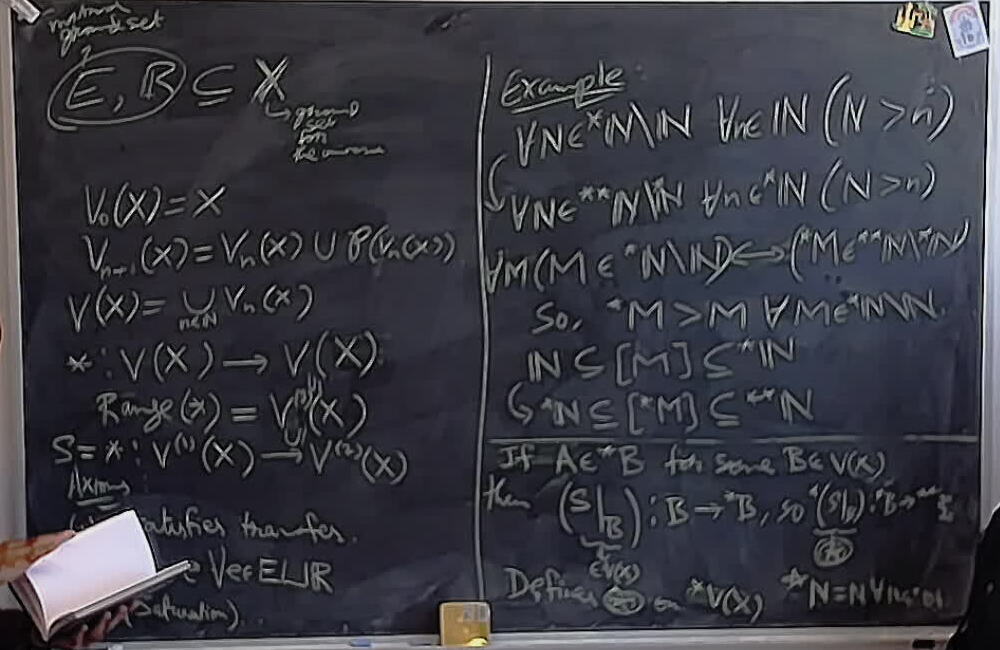 ground set
E, ℝ ⊆ X
↳ ground set for the universe
V₀(X) = X
Vₙ₊₁(X) = Vₙ(X) ∪ P(Vₙ(X))
V(X) = ∪ₙ∈ℕ Vₙ(X)
* : V(X) → V(X)
Range(*) = V⁽¹⁾(X)
S = * : V⁽¹⁾(X) → V⁽²⁾(X)
Axioms
satisfies transfer.
∀e∈E∪ℝ
(Saturation).
Example:
∀N∈*ℕ\ℕ ∀n∈ℕ (N > n)
∀N∈**ℕ\*ℕ ∀n∈*ℕ (N > n)
∀M(M ∈ *ℕ\ℕ) ↔ (*M∈**ℕ\*ℕ)
So, *M > M ∀M∈*ℕ\ℕ.
ℕ ⊆ [M] ⊆ *ℕ
↳ *ℕ ⊆ [*M] ⊆ **ℕ
If A∈*B for some B∈V(X)
then (S|_B) : B → *B, so *(S|_B) : *B → **B
∈V(X)
Defines on *V(X)